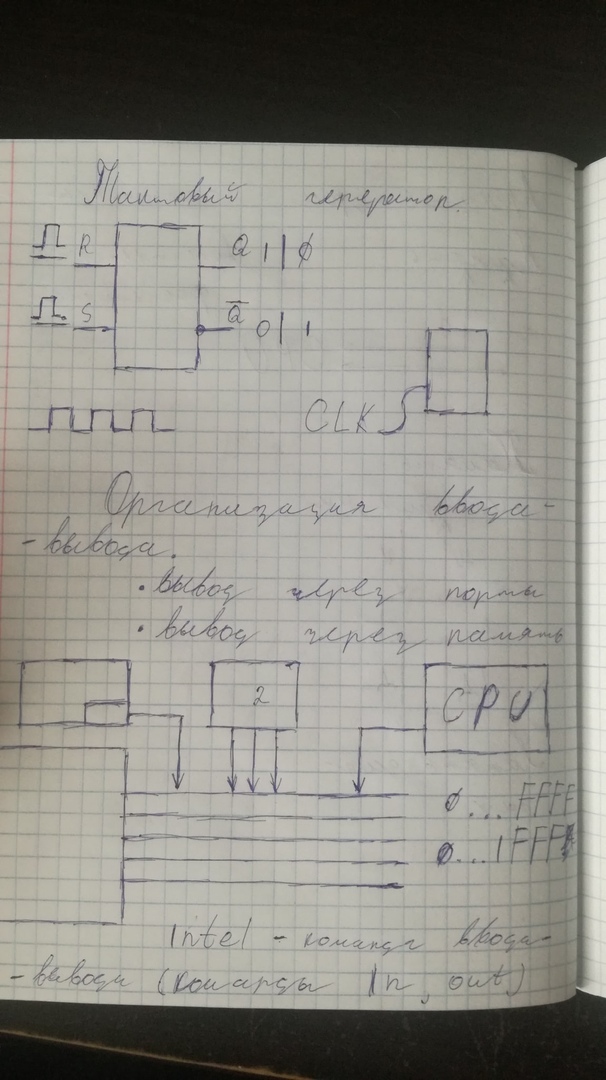 Тактовый генератор.
R Q 1 | 0
S Q̅ 0 | 1
CLK
Организация ввода-
-вывода.
• вывод через порты
• вывод через память
2 CPU
0...FFFF
0...1FFF
Intel - команда ввода-
-вывода (команды In, out)